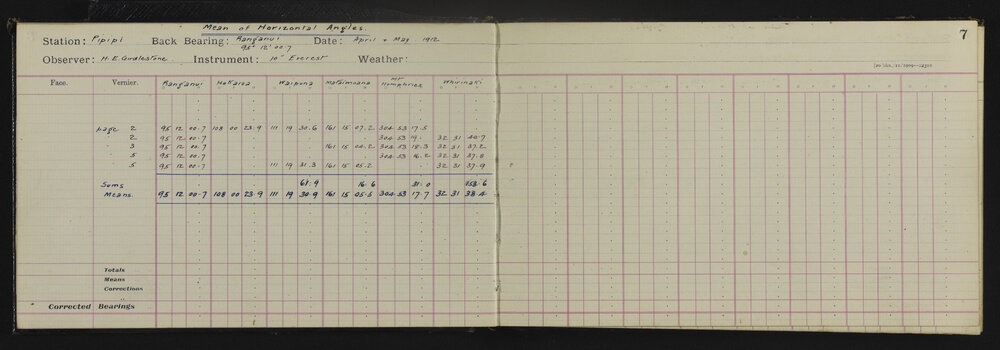 Mean of Horizontal Angles.
7
Station: Pipipi Back Bearing: Ranganui 95° 12' 00.7 Date: April & May 1912
Observer: H.E. Girdlestone Instrument: 10" Everest Weather:
Face. Vernier. Ranganui Hokaroa Waipuna Mataimoana Mt Humphries Whirinaki
page 2 95 12 00.7 108 00 23.9 111 19 30.6 161 15 07.2 304 53 17.5
2 95 12 00.7 304 53 19. 32 31 40.7
3 95 12 00.7 161 15 04.2 304 53 18.3 32 31 37.2
5 95 12 00.7 304 53 16.2 32 31 37.8
5 95 12 00.7 111 19 31.3 161 15 05.2 32 31 37.9
Sums 61.9 16.6 31.0 153.6
Means. 95 12 00.7 108 00 23.9 111 19 30.9 161 15 05.5 304 53 17.7 32 31 38.4
Totals
Means
Corrections
Corrected Bearings